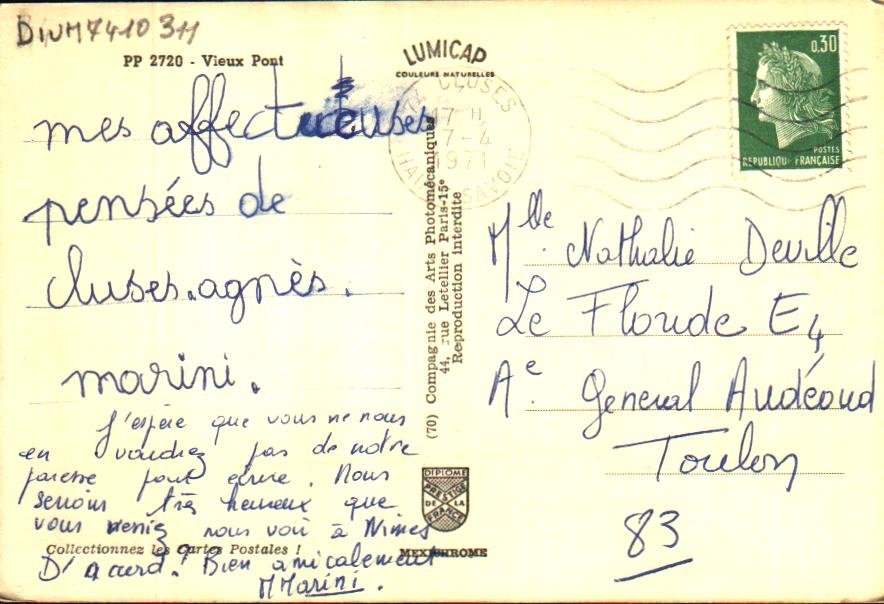 DIVM7410311
PP 2720 - Vieux Pont
LUMICAP
COULEURS NATURELLES
CLUSES
17 H
7-4
1971
HAUTE SAVOIE
0,30
POSTES
REPUBLIQUE FRANÇAISE
mes affectueuses
pensées de
cluses. agnès.
marini.
J'espère que vous ne nous
en voudrez pas de notre
paresse pour écrire. Nous
serions très heureux que
vous veniez nous voir à Nimes
D'accord! Bien amicalement
MMarini.
Collectionnez les Cartes Postales !
(70) Compagnie des Arts Photomécaniques
44, rue Letellier Paris-15e
Reproduction interdite
DIPLOME
PRESTIGE
DE LA
FRANCE
MEXICHROME
Mlle. Nathalie Deville
Le Floride E4
Ae. General Audéoud
Toulon
83